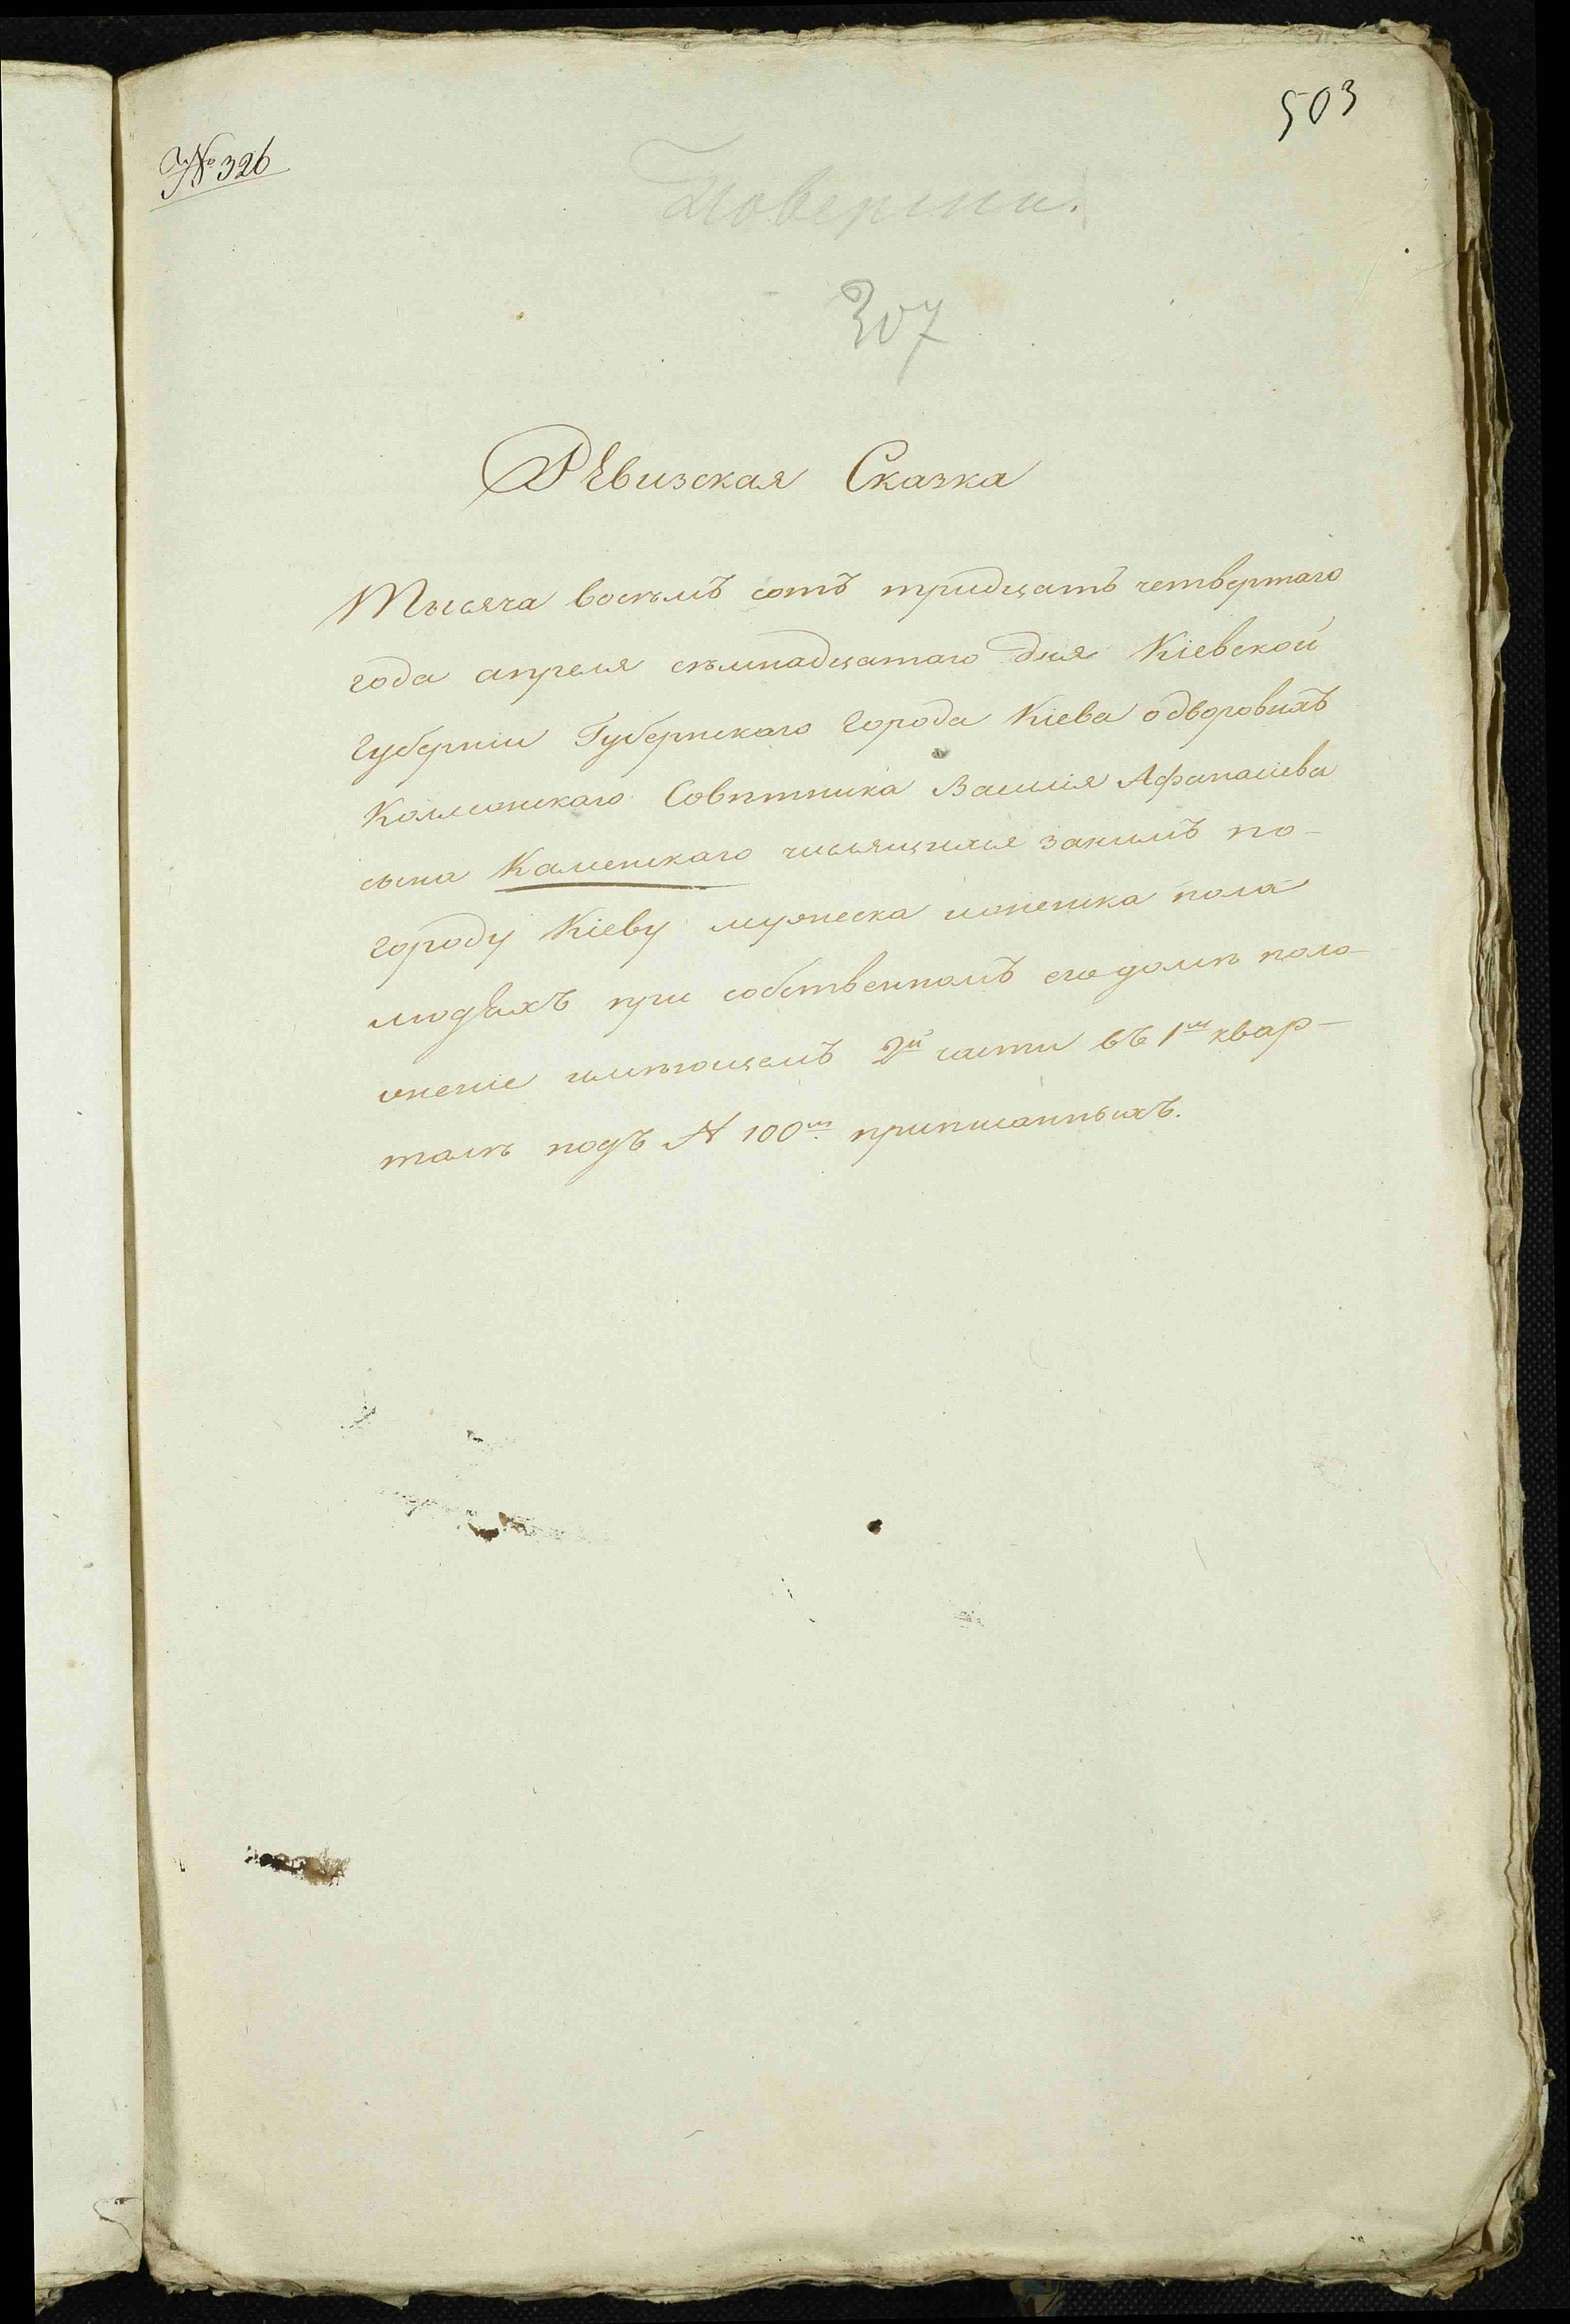 503
№ 326
Поверена.
307
Ревизская Сказка
Тысяча восемъ сотъ тридцать четвертаго
года апреля съмнадцатаго дня Кіевской
губерніи Губернскаго города Кіева одворовыхъ
Коллежскаго Совѣтника Василія Афанасіева
сына Каменскаго числящихся занимъ по-
городу Кіеву мужеска иженска пола
людѣхъ при собственномъ его домѣ поло-
женіе имѣющемъ 2й части въ 1м квар-
талѣ подъ N 100м приписанныхъ.